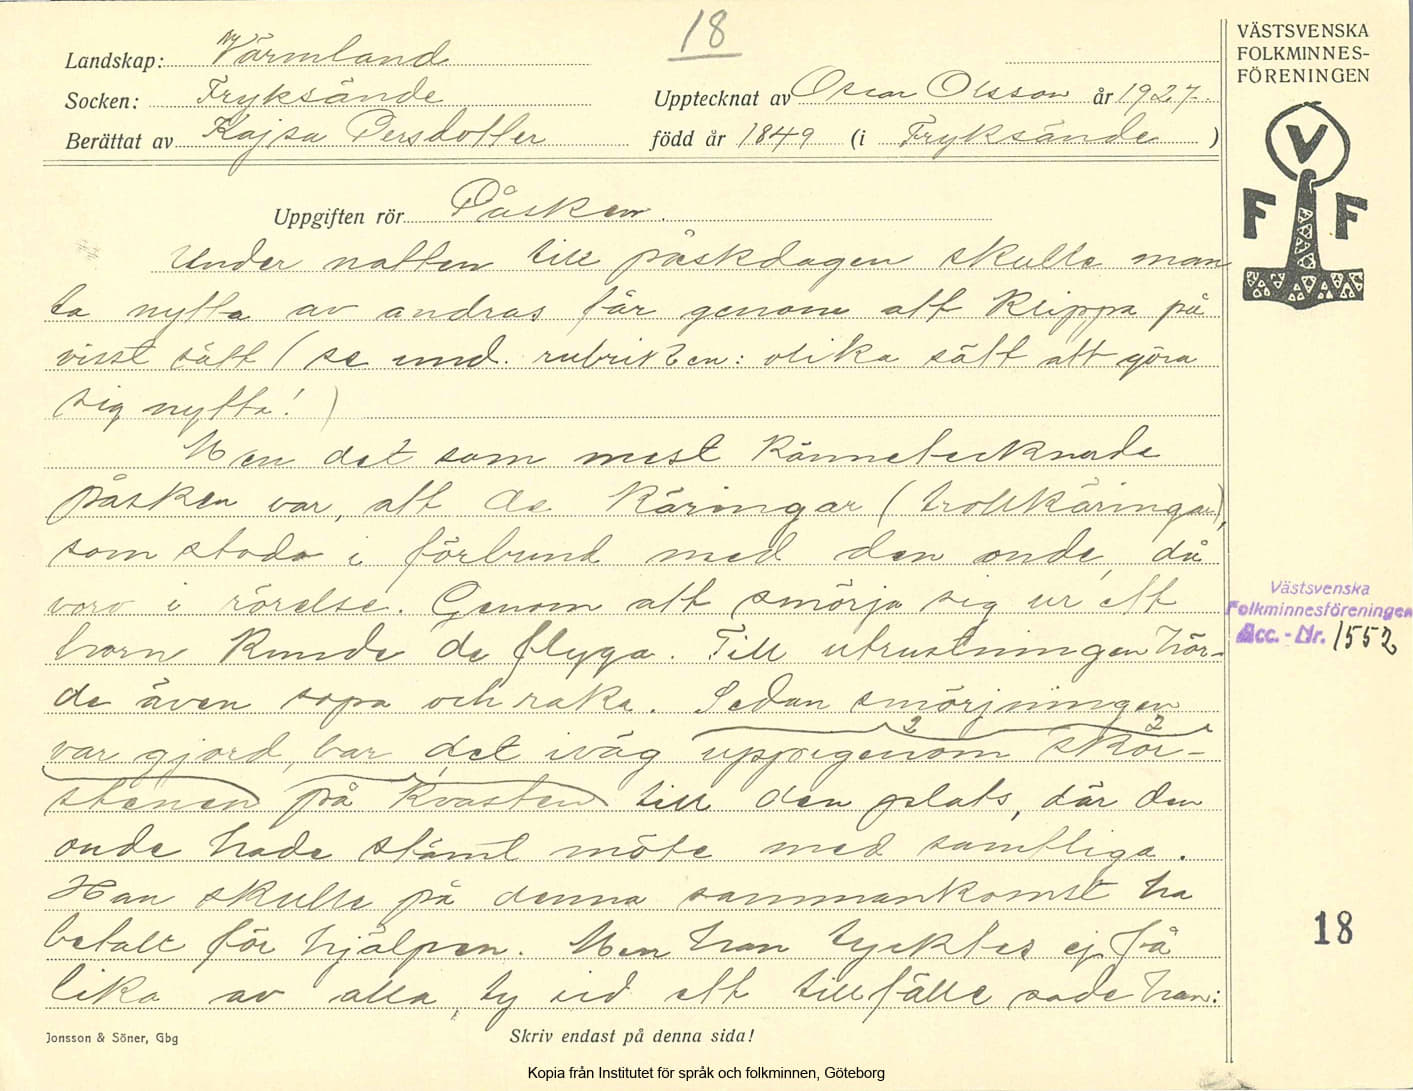 18
VÄSTSVENSKA
FOLKMINNES-
FÖRENINGEN
V
F F
Landskap: Värmland
Socken: Fryksände
Upptecknat av Oscar Olsson år 1927
Berättat av Kajsa Persdotter född år 1849 (i Fryksände )
Uppgiften rör Påsken.
Under natten till påskdagen skulle man
ta nytta av andras får genom att klippa på
visst sätt (se und. rubriken: olika sätt att göra
sig nytta! )
Men det som mest kännetecknade
påsken var, att de käringar (trollkäringar),
som stodo i förbund med den onde, då
voro i rörelse. Genom att smörja sig ur ett
horn kunde de flyga. Till utrustningen hör-
de även sopa och raka. Sedan smörjningen
var gjord, bar det iväg uppigenom skor-
2 2
stenen på kvasten till den plats, där den
onde hade stämt möte med samtliga.
Han skulle på denna sammankomst ha
betalt för hjälpen. Men han tycktes ej få
lika av alla, ty vid ett tillfälle sade han:
Västsvenska
Folkminnesföreningen
Acc.-Nr. 1552
18
Jonsson & Söner, Gbg
Skriv endast på denna sida!
Kopia från Institutet för språk och folkminnen, Göteborg